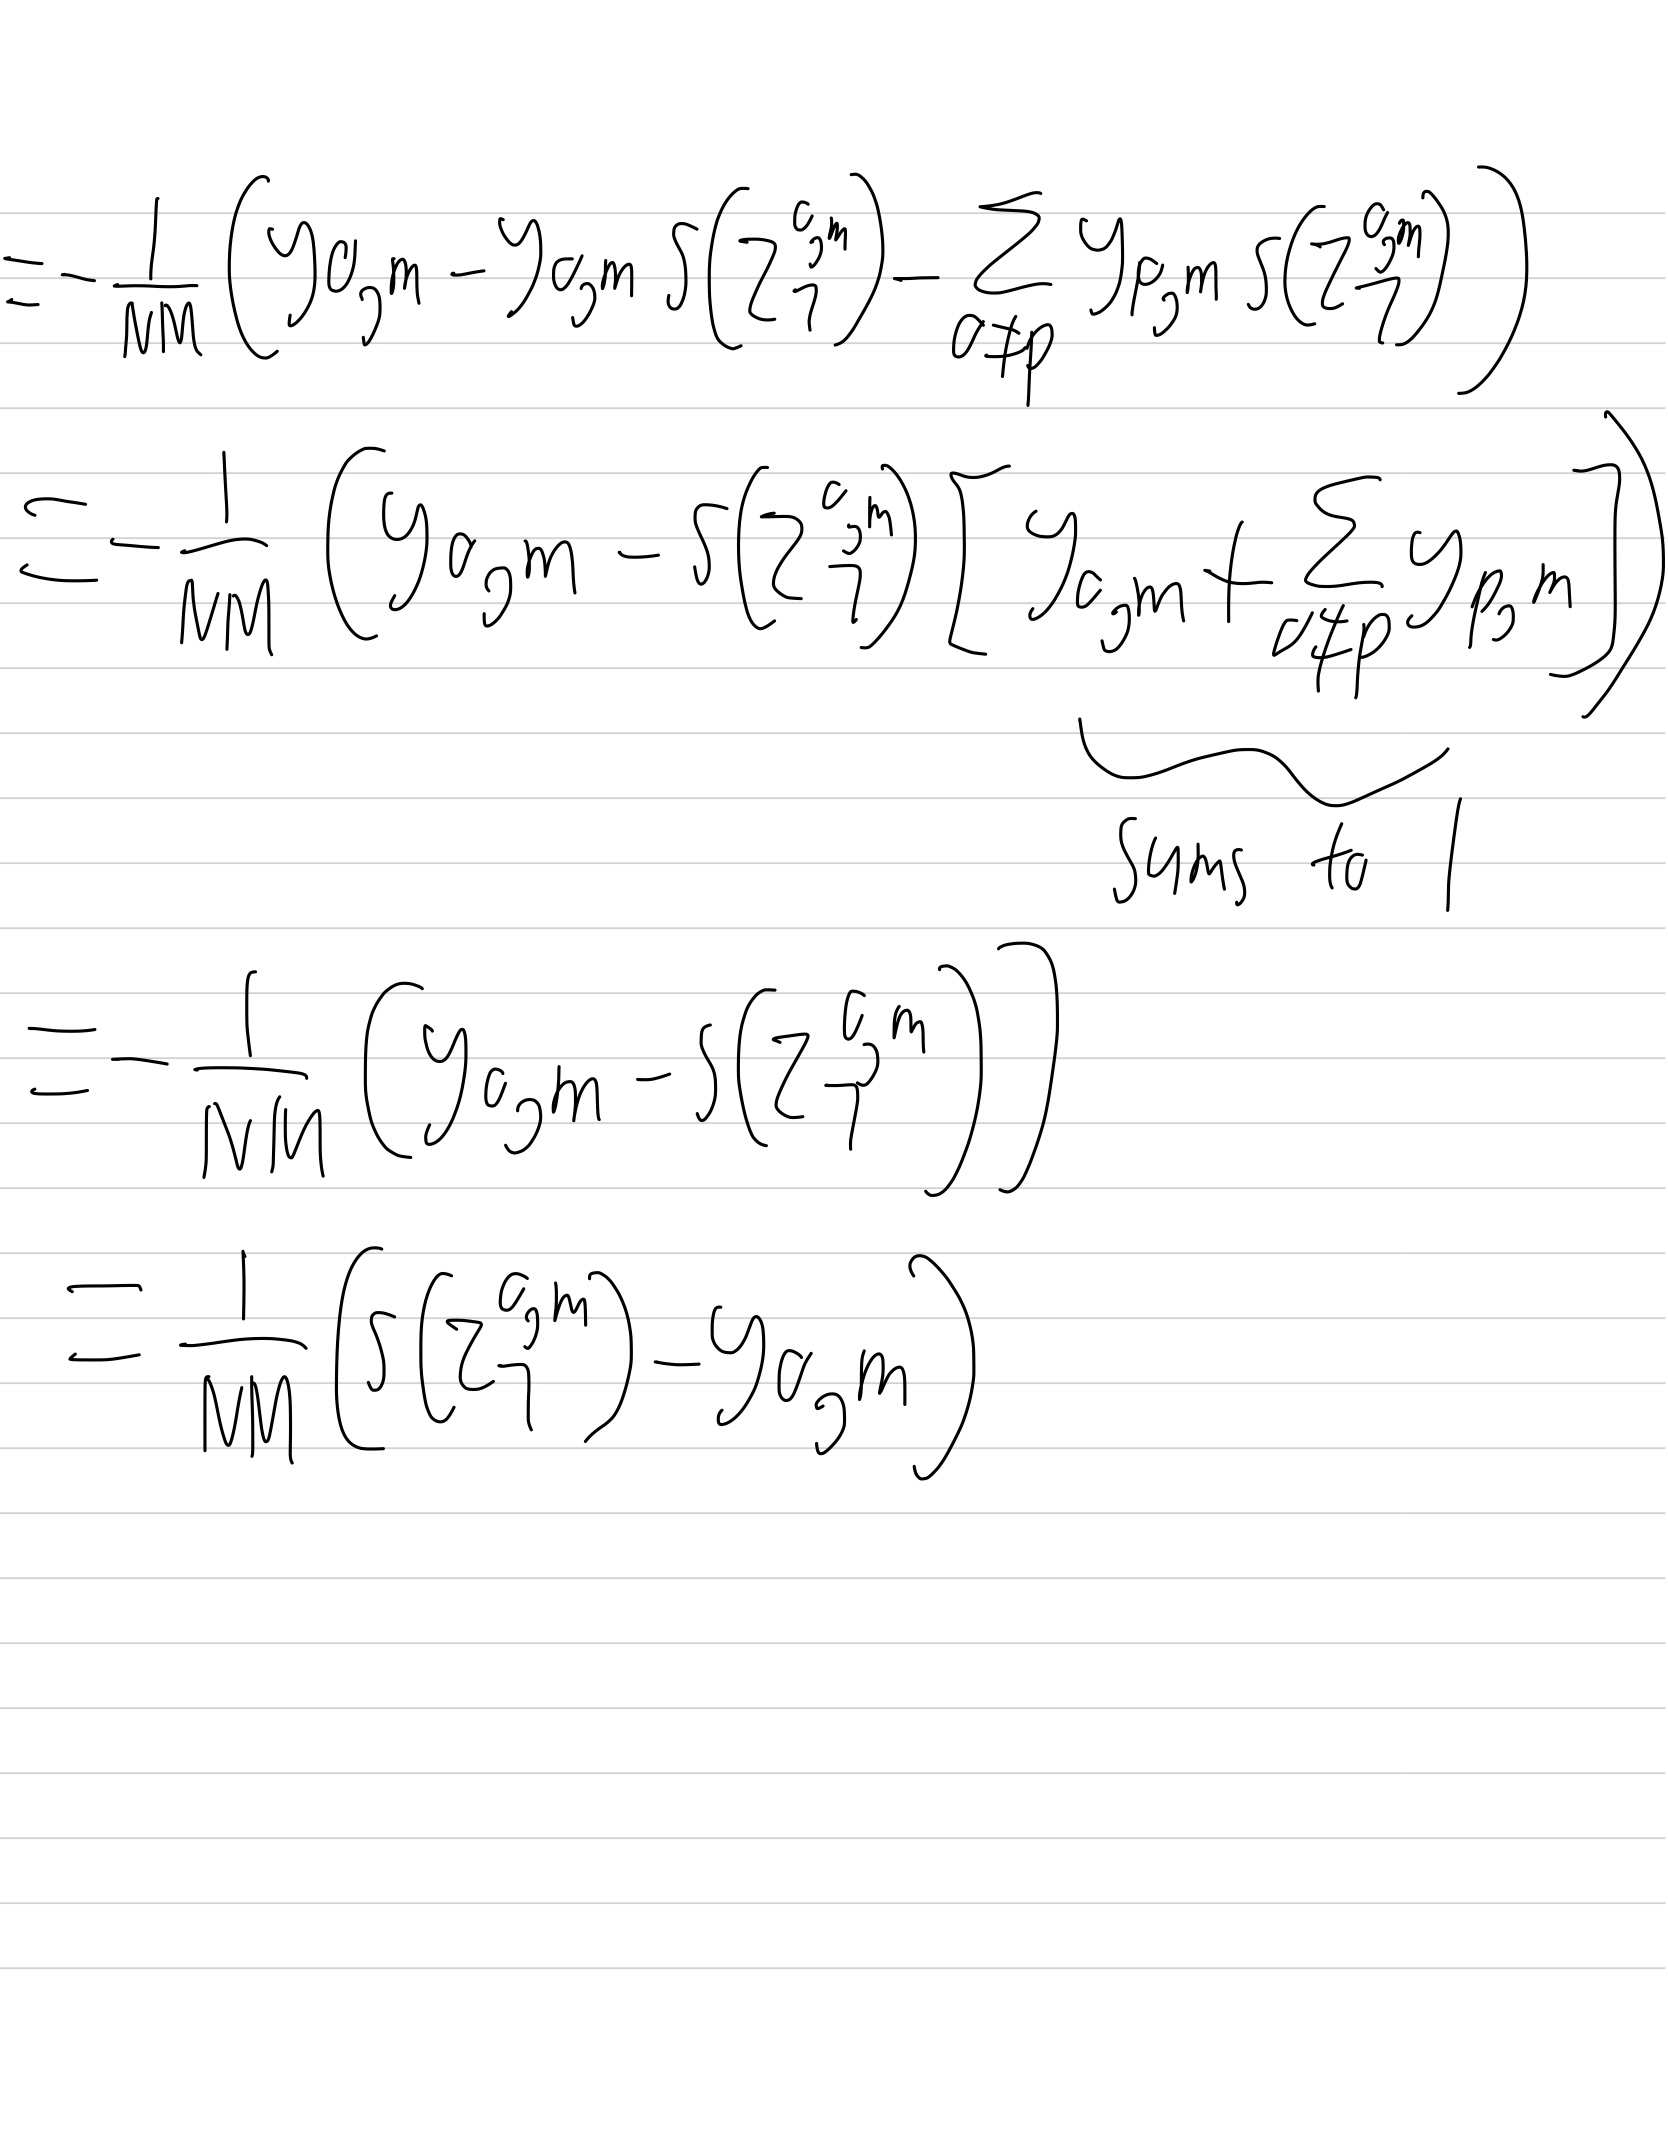 = -1/NM (y_{a,m} - y_{a,m} S(z_7^{a,m}) - Σ_{a≠p} y_{p,m} S(z_7^{a,m}))
= -1/NM (y_{a,m} - S(z_7^{a,m}) [y_{a,m} + Σ_{a≠p} y_{p,m}])
sums to 1
= -1/NM (y_{a,m} - S(z_7^{a,m}))
= 1/NM (S(z_7^{a,m}) - y_{a,m})